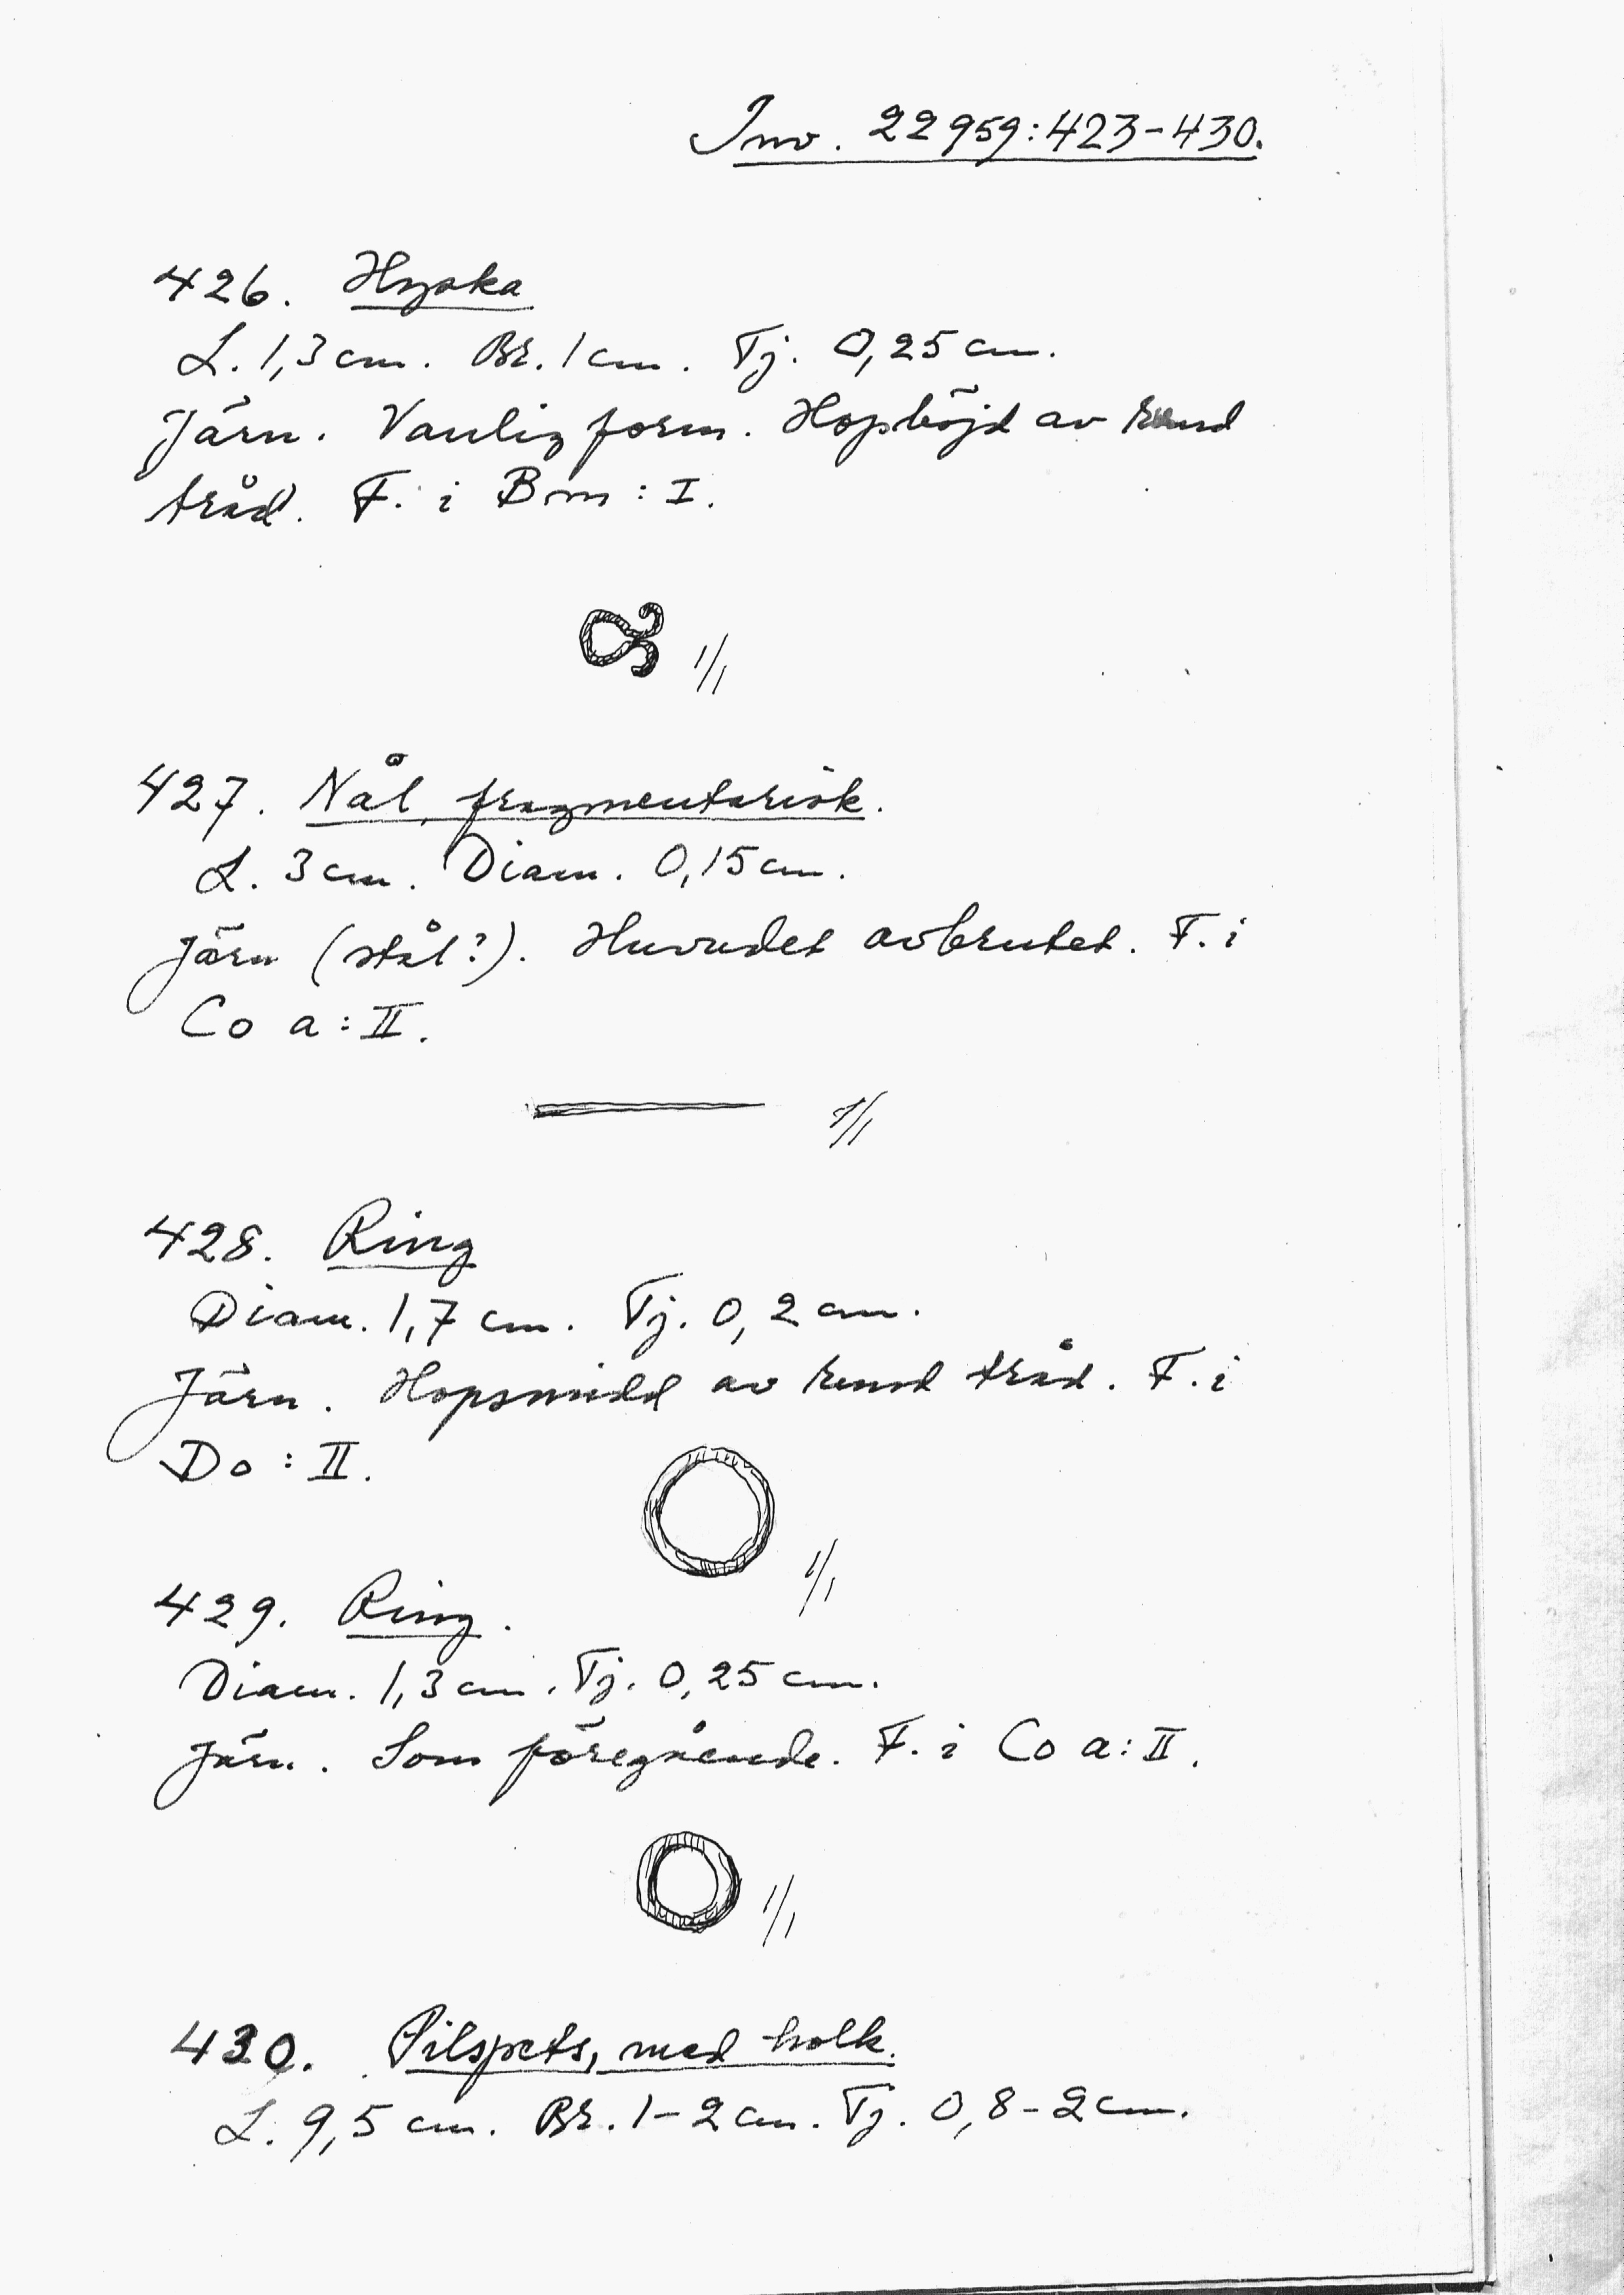 Inv. 22959:423-430.
426. Hyska
L. 1,3 cm. Br. 1 cm. Tj. 0,25 cm.
Järn. Vanlig form. Hopböjd av rund
tråd. F. i Bm : I.
1/1
427. Nål, fragmentarisk.
L. 3 cm. Diam. 0,15 cm.
Järn (stål?). Huvudet avbrutet. F. i
Co a : II.
1/1
428. Ring
Diam. 1,7 cm. Tj. 0,2 cm.
Järn. Hopsmidd av rund tråd. F. i
Do : II.
1/1
429. Ring.
Diam. 1,3 cm. Tj. 0,25 cm.
Järn. Som föregående. F. i Co a : II.
1/1
430. Pilspets, med holk.
L. 9,5 cm. Br. 1-2 cm. Tj. 0,8-2 cm.